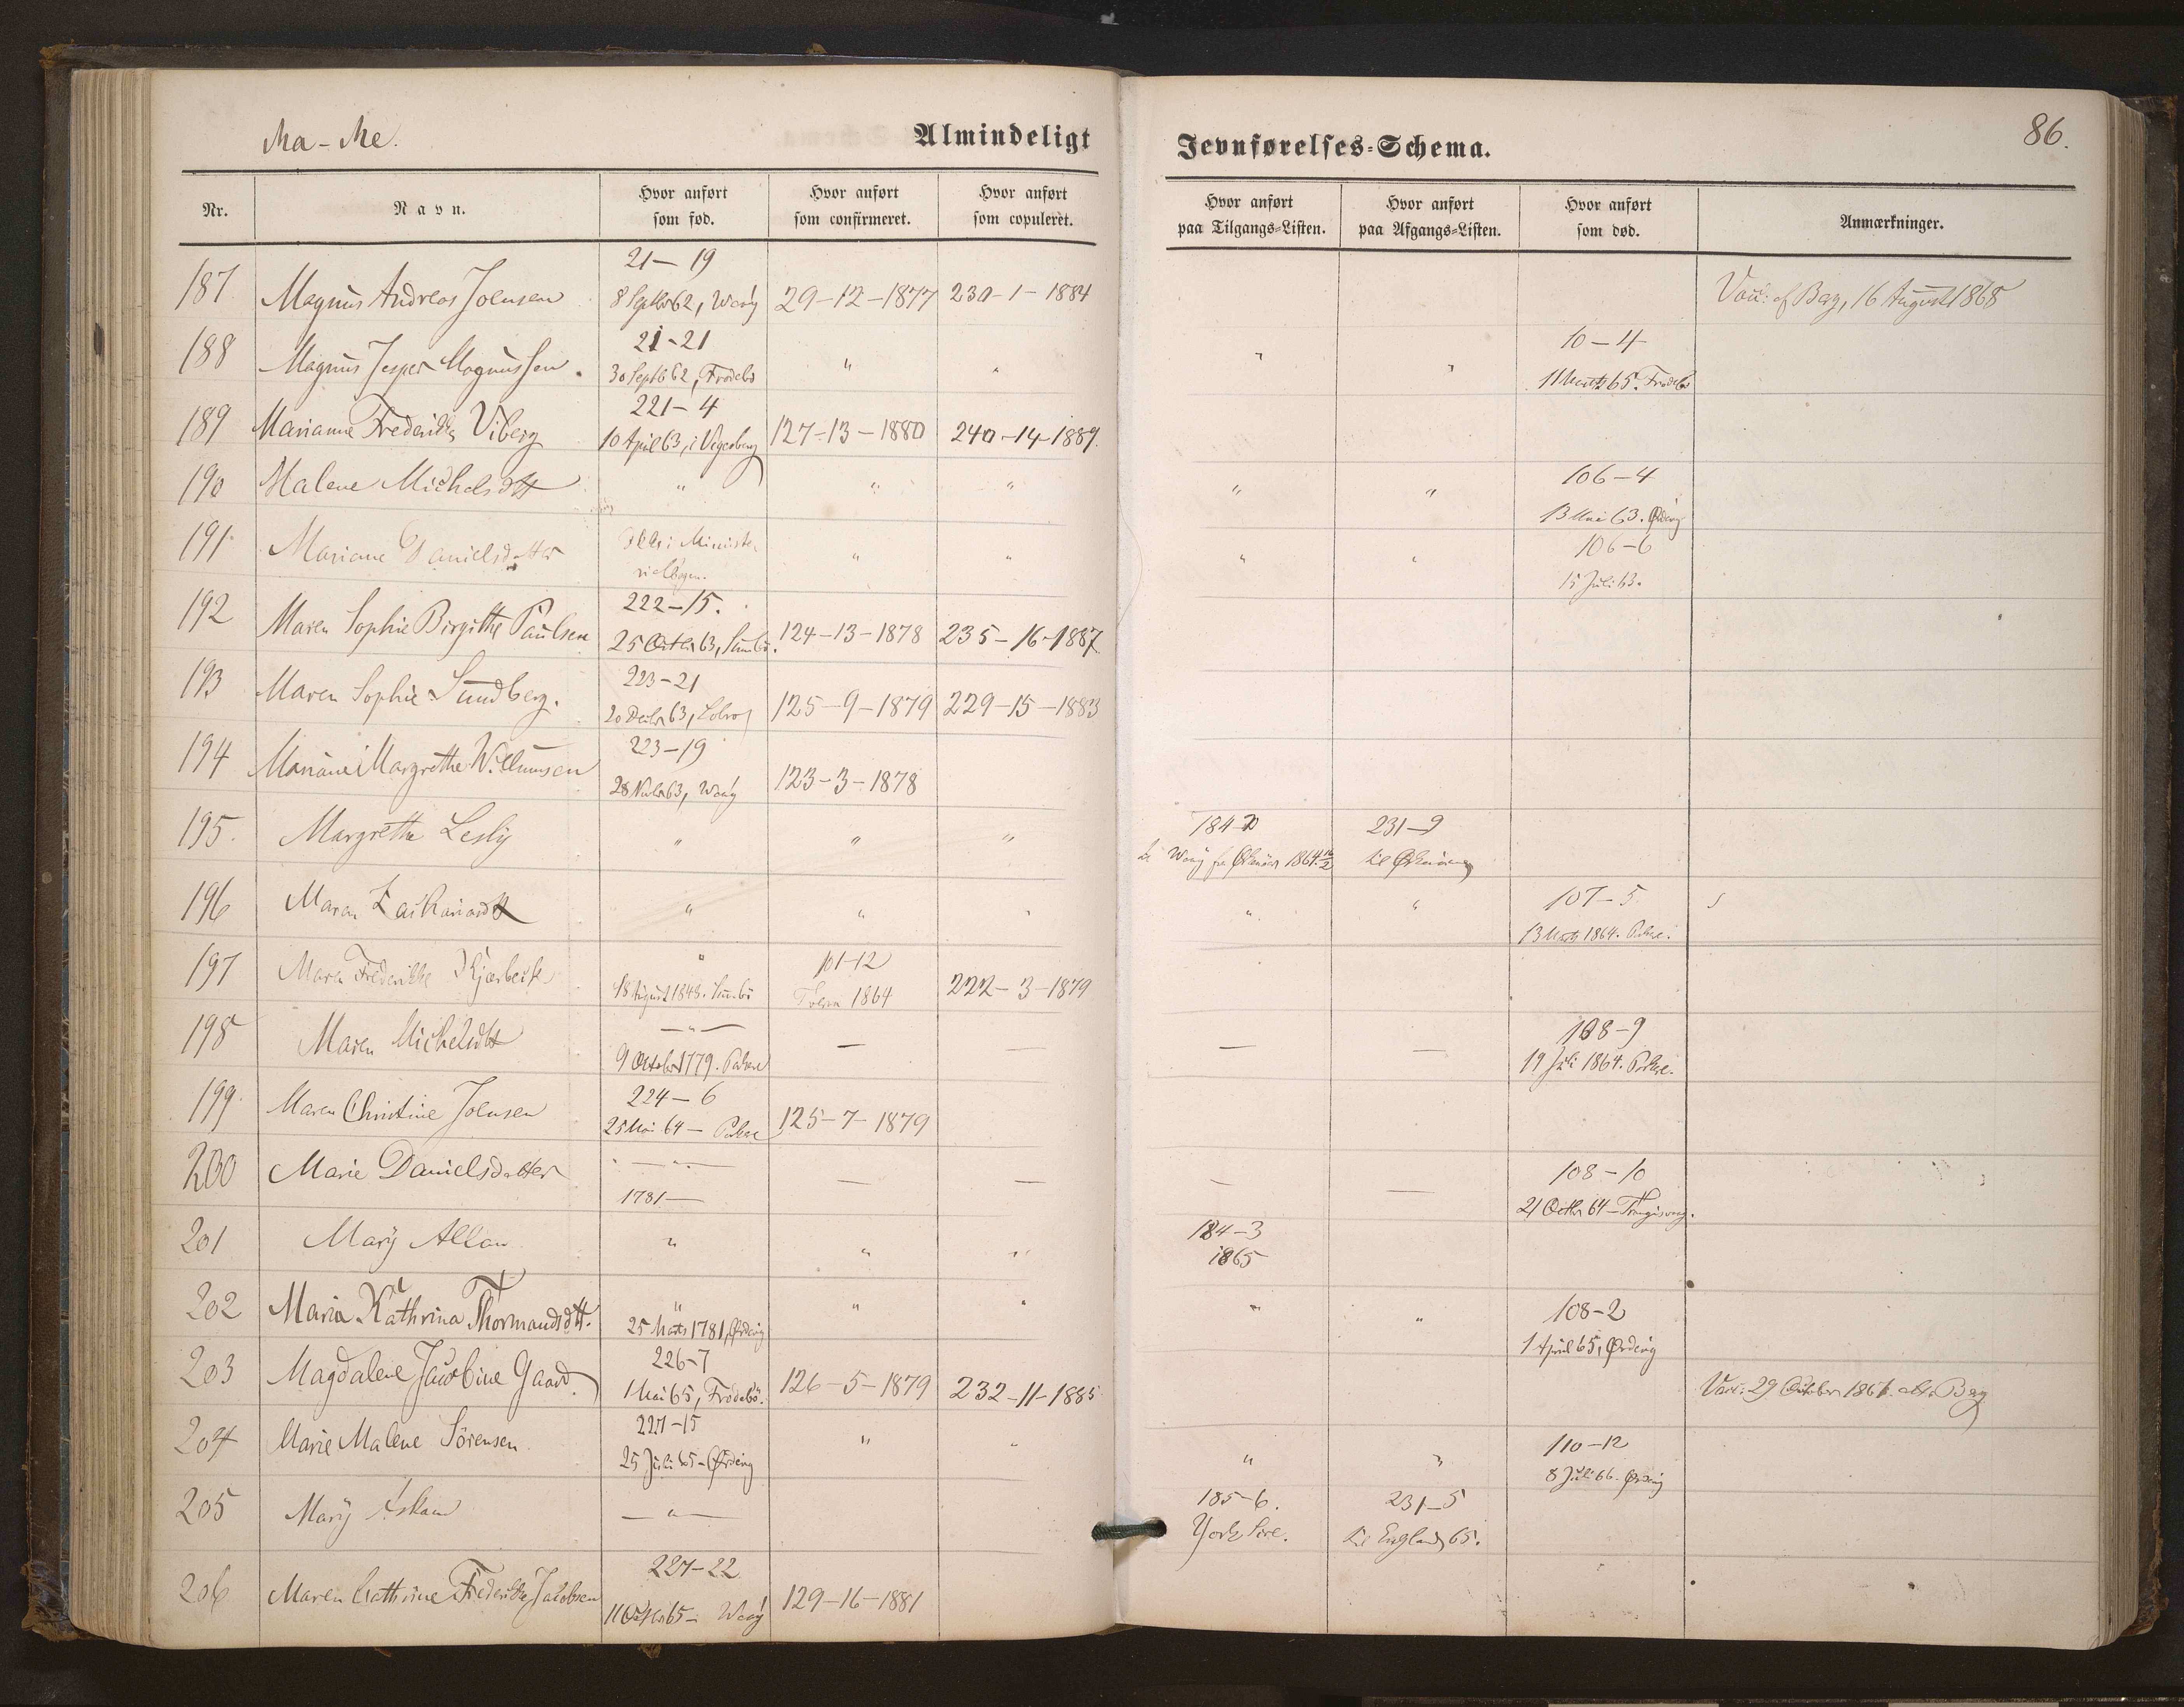 Ma - Me.
Almindeligt
Jevnførelses-Schema.
86.
Nr.
Navn.
Hvor anført
som fød.
Hvor anført
som confirmeret.
Hvor anført
som copuleret.
Hvor anført
paa Tilgangs-Listen.
Hvor anført
paa Afgangs-Listen.
Hvor anført
som død.
Anmærkninger.
21 - 19
187 Magnus Andreas Joensen 8 Septbr 62, Waag 29-12-1877 230-1-1884 Vacc: af Bay, 16 August 1868
21-21 10-4
188 Magnus Jesper Magnussen. 30 Septb 62, Frodebø " " " " 11 Marts 65. Frodebø
221-4
189 Marianne Frederikke Viberg 10 April 63, i 127-13-1880 240-14-1889.
106-4
190 Malene Michelsdtt " " " " " 13 Mai 63. Ørdevig
106-6
191 Mariane Danielsdatter i Ministe-
rialbogen. " " " " 15 Juli 63.
222-15.
192 Maren Sophie Birgithe Paulsen 25 Octbr 63, Sumbø. 124-13-1878 235-16-1887
223-21
193 Maren Sophie Sundberg. 20 Decbr 63, 125-9-1879 229-15-1883
223-19
194 Mariane Margrethe Willumsen 28 Novbr 63, Waag 123-3-1878
184- 231-9
195. Margrethe Lesly " " " Waag fra Ørkenøerne 1864 til Ørkenøerne
107-5
196 Maren Zachariasdtt " " " " " 13 Marts 1864. Porkere.
" 101-12
197 Maren Frederikke Kjærbeck 18 August 1848. Sumbø 1864 222-3-1879
-"- 108-9
198 Maren Michelsdtt 9 October 1779. Porkere - - - - 19 Juli 1864. Porkere.
224-6
199. Maren Christine Joensen 25 Mai 64 - Porkere 125-7-1879
-"- 108-10
200 Marie Danielsdatter 1781 - - - - - 21 Octbr 64 - Trangisvaag.
184-3
201 Mary Allan " " " 1865
" 108-2
202 Maria Kathrina Thormandsdtt. 25 Marts 1781, Ørdevig " " " " 1 April 65, Ørdevig
226-7
203 Magdalene Jacobine Gaard. 1 Mai 65, Frodebø. 126-5-1879 232-11-1885 Vacc: 29 October 1861. af Bay
227-15 110-12
204 Marie Malene Sörensen 25 Juli 65 - Ørdevig " " " " 8 Juli 66. Ørdevig
185-6. 231-5
205 Mary Askam -"- Yorkshire. til England 65.
227-22
206 Maren Cathrine Frederikke Jacobsen 11 Octbr 65 - Waag 129-16-1881